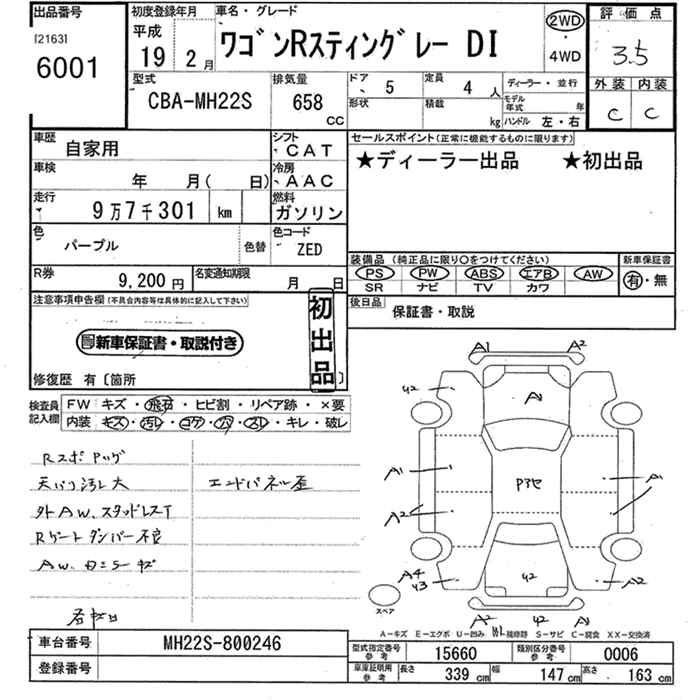 出品番号
[2163]
6001
初度登録年月
平成
19 2月
車名・グレード
ワゴンRスティングレー DI
2WD
・
4WD
評価点
3.5
外装 内装
C C
型式
CBA-MH22S
排気量
658
cc
ドア
5
定員
4 人
形状
積載
kg
ディーラー・並行
モデル年式 年
ハンドル 左・右
車歴
自家用
シフト
CAT
車検
年 月( 日)
冷房
AAC
走行
9万7千301 km
燃料
ガソリン
色
パープル
色替
色コード
ZED
R券
9,200円
名変通知期限
月 日
セールスポイント(正常に機能するものに限ります)
★ディーラー出品 ★初出品
装備品(純正品に限り○をつけてください)
PS PW ABS エアB AW
SR ナビ TV カワ
新車保証書
有・無
後日品
保証書・取説
注意事項申告欄(不具合内容等は具体的に記入して下さい)
新車保証書・取説付き
初出品
修復歴 有〔箇所 〕
検査員記入欄
FW キズ・飛石・ヒビ割・リペア跡・×要
内装 キズ・汚レ・コゲ・穴・スレ・キレ・破レ
Rスポ アップ
天バリ汚レ大
エンドパネル歪
外AW、スタッドレスT
Rゲートダンパー不良
A1 A2
U2 A1
A1 P3セ A1
A2
A4 U3 U2 A2
スペア
A2 U2 A1
A-キズ E-エクボ U-凹み W-補修跡 S-サビ C-腐食 XX-交換済
車台番号
MH22S-800246
登録番号
型式指定番号 参考
15660
類別区分番号 参考
0006
車庫証明用 参考
長さ 339 cm
幅 147 cm
高さ 163 cm